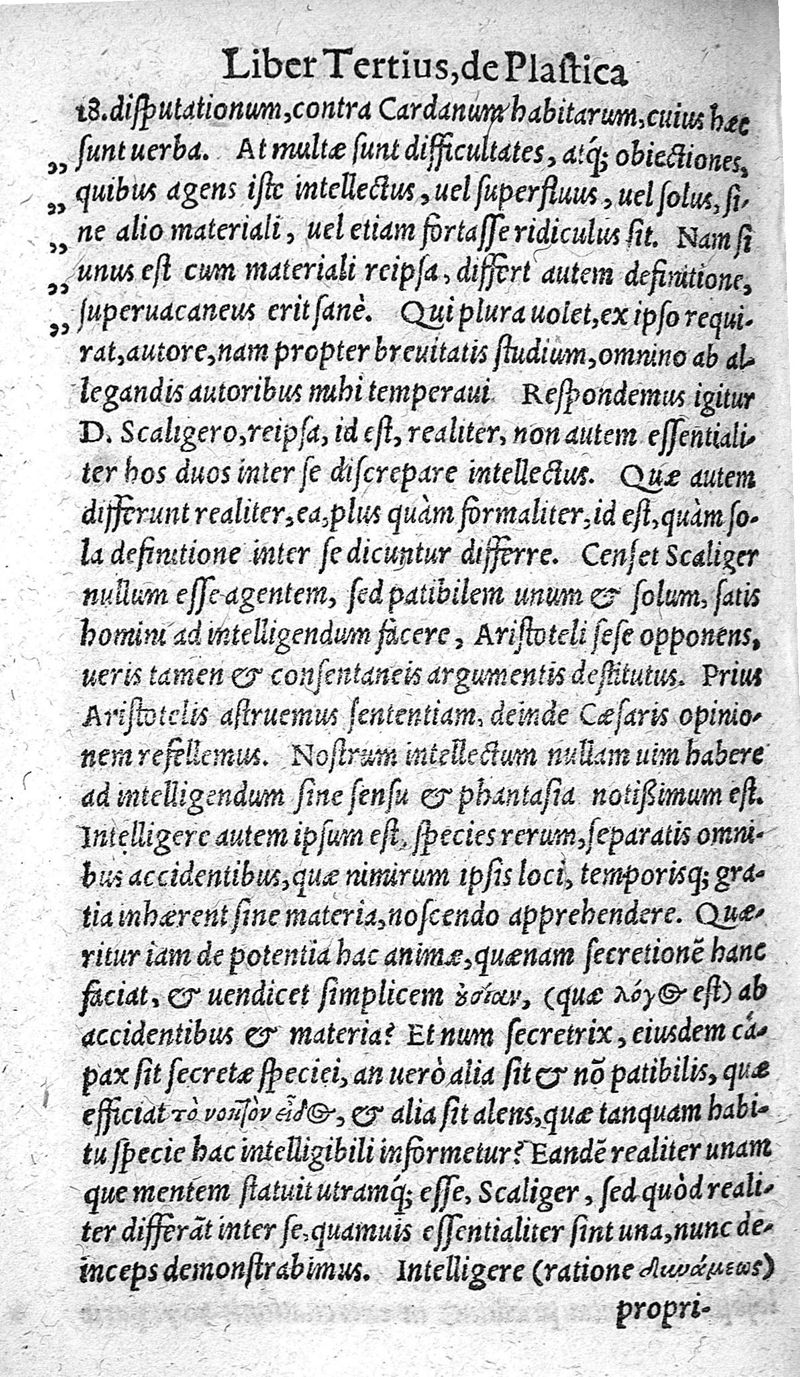 Liber Tertius, de Plaſtica
18. diſputationum, contra Cardanum habitarum, cuius hæc
„ ſunt uerba. At multæ ſunt difficultates, atq́; obiectiones,
„ quibus agens iſte intellectus, uel ſuperfluus, uel ſolus, ſi-
„ ne alio materiali, uel etiam fortaſſe ridiculus ſit. Nam ſi
„ unus eſt cum materiali reipſa, differt autem definitione,
„ ſuperuacaneus erit ſanè. Qui plura uolet, ex ipſo requi-
rat, autore, nam propter breuitatis ſtudium, omnino ab al-
legandis autoribus mihi temperaui. Reſpondemus igitur
D. Scaligero, reipſa, id eſt, realiter, non autem eſſentiali-
ter hos duos inter ſe diſcrepare intellectus. Quæ autem
differunt realiter, ea, plus quàm formaliter, id eſt, quàm ſo-
la definitione inter ſe dicuntur differre. Cenſet Scaliger
nullum eſſe agentem, ſed patibilem unum & ſolum, ſatis
homini ad intelligendum facere, Ariſtoteli ſeſe opponens,
ueris tamen & conſentaneis argumentis deſtitutus. Prius
Ariſtotelis aſtruemus ſententiam, deinde Cæſaris opinio-
nem refellemus. Noſtrum intellectum nullam uim habere
ad intelligendum ſine ſenſu & phantaſia notißimum eſt.
Intelligere autem ipſum eſt, ſpecies rerum, ſeparatis omni-
bus accidentibus, quæ nimirum ipſis loci, temporisq; gra-
tia inhærent ſine materia, noſcendo apprehendere. Quæ-
ritur iam de potentia hac animæ, quænam ſecretionē hanc
faciat, & uendicet ſimplicem ȣ̓σίαν, (quæ λόγος eſt) ab
accidentibus & materia? Et num ſecretrix, eiuſdem ca-
pax ſit ſecretæ ſpeciei, an uerò alia ſit & nō patibilis, quæ
efficiat τὸ νοητὸν εἶδος, & alia ſit alens, quæ tanquam habi-
tu ſpecie hac intelligibili informetur? Eandē realiter unam
que mentem ſtatuit utramq́; eſſe, Scaliger, ſed quòd reali-
ter differāt inter ſe, quamuis eſſentialiter ſint una, nunc de-
inceps demonſtrabimus. Intelligere (ratione δυνάμεως)
propri-